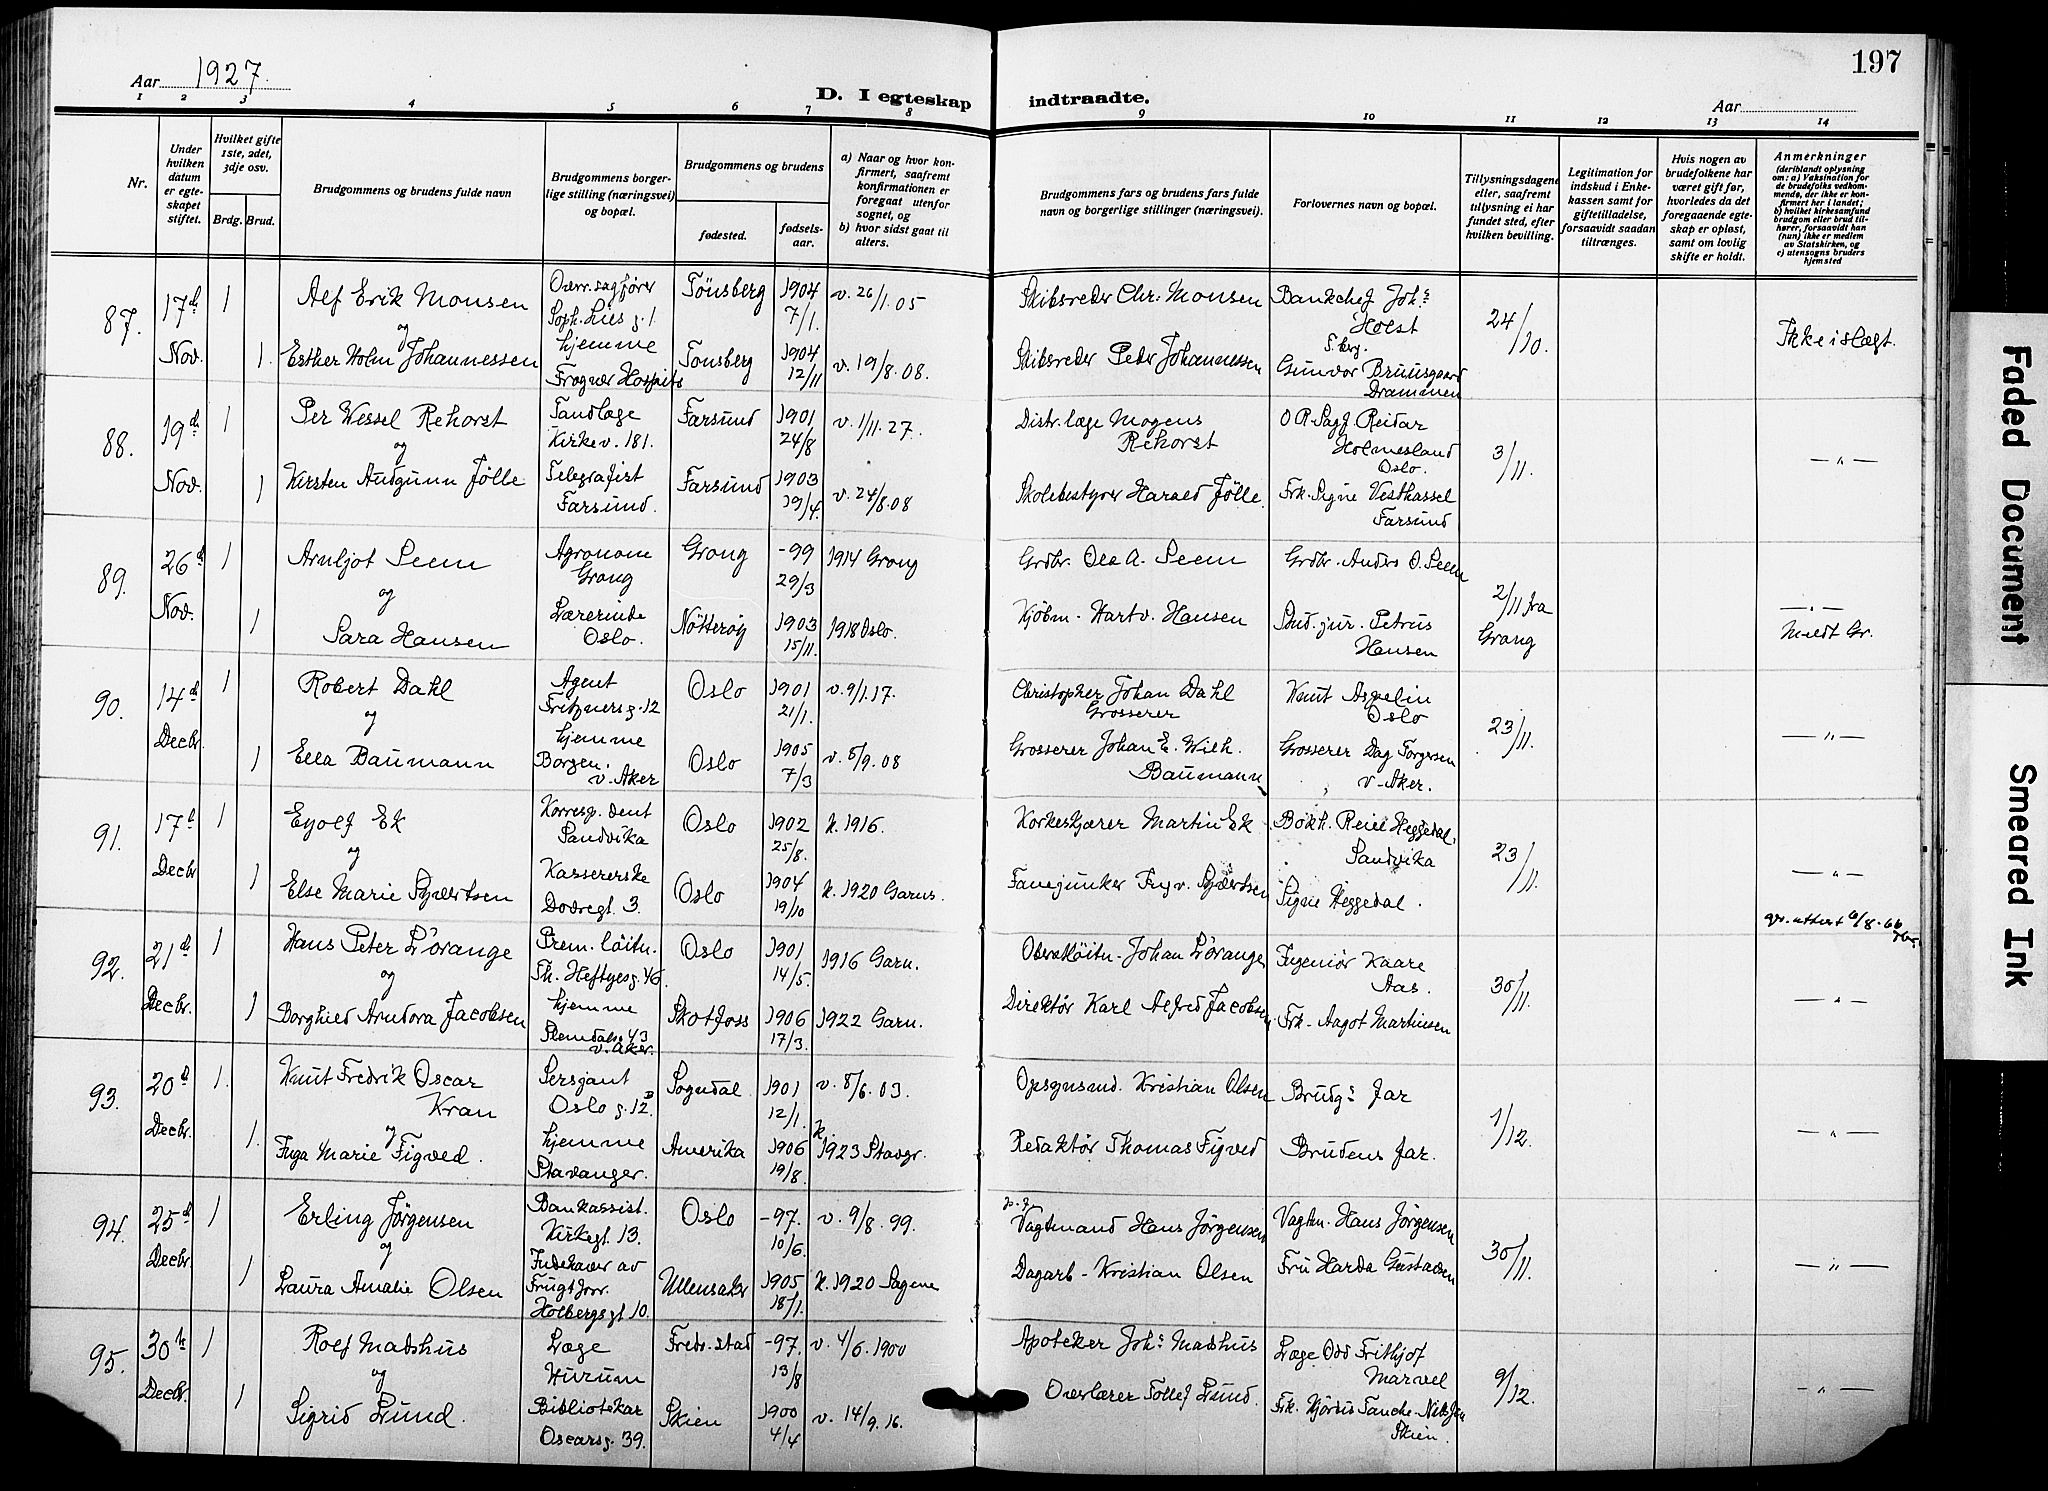 Aar 1927.
D. I egteskap indtraadte.
Aar
197
1 2 3 4 5 6 7 8 9 10 11 12 13 14
Nr.
Under hvilken datum er egteskapet stiftet.
Hvilket gifte 1ste, 2det, 3dje osv.
Brdg. Brud.
Brudgommens og brudens fulde navn
Brudgommens borgerlige stilling (næringsvei) og bopæl.
Brudgommens og brudens
fødested.
fødselsaar.
a) Naar og hvor konfirmert, saafremt konfirmationen er foregaat utenfor sognet, og
b) hvor sidst gaat til alters.
Brudgommens fars og brudens fars fulde navn og borgerlige stillinger (næringsvei).
Forlovernes navn og bopæl.
Tillysningsdagene eller, saafremt tillysning ei har fundet sted, efter hvilken bevilling.
Legitimation for indskud i Enkekassen samt for giftetilladelse, forsaavidt saadan tiltrænges.
Hvis nogen av brudefolkene har været gift før, hvorledes da det foregaaende egteskap er opløst, samt om lovlig skifte er holdt.
Anmerkninger (deriblandt oplysning om: a) Vaksination for de brudefolks vedkommende, der ikke er konfirmert her i landet; b) hvilket kirkesamfund brudgom eller brud tilhører, forsaavidt han (hun) ikke er medlem av Statskirken, og c) utensogns bruders hjemsted
87. 17d Nov. 1 Alf Erik Monsen Overr.sagfører Soph. Lies g. 1 Tönsberg 1904 7/1. v. 26/1.05 Skibsreder Chr. Monsen Bankchef Johs Holst T.berg. 24/10. Ikke i slegt.
og
1. Esther Holm Johannessen hjemme Frogner Hospits Tonsberg 1904 12/11 v. 19/8.08. Skibsreder Peder Johannessen Gunvor Bruusgaard Drammen
88. 19d Nov. 1 Per Wessel Rehorst Tandlæge Kirkev. 181. Farsund 1901 24/8 v. 1/11.27. Distr.læge Mogens Rehorst O.R.Sagf. Reidar Holmesland Oslo. 3/11. -"-
og
1 Kirsten Audgunn Jølle Telegrafist Farsund. Farsund 1903 19/4. v. 24/8.08 Skolebestyrer Harald Jølle. Frk. Signe Vesthassel Farsund
89. 26d Nov. 1 Arnljot Seem Agronom Grong Grong -99 29/3 1914 Grong Grdbr. Ola A. Seem Grdbr. Anders O. Seem 2/11 fra Grong -"-
og
1 Sara Hansen Lærerinde Oslo. Nötteröy 1903 15/11. 1918 Oslo. Kjöbm. Hartv. Hansen Stud. jur. Petrus Hansen Meldt Gr.
90. 14d Decbr. 1 Robert Dahl Agent Fritznersg. 12 Oslo 1901 21/1. v. 9/1.17. Christopher Johan Dahl Grosserer Knut Aspelin Oslo 23/11. -"-
og
1 Ella Baumann hjemme Borgen. v. Aker Oslo 1905 7/3 v. 8/9.08 Grosserer Johan E. Wilh. Baumann Grosserer Dag Torgersen v. Aker.
91. 17d Decbr 1 Eyolf Ek Korresp.dent Sandvika Oslo 1902 25/8. k. 1916. Korkeskjærer Martin Ek Bokh. Reiel Heggedal, Sandvika 23/11. -"-
og
1 Else Marie Syvertsen Kassererske Dovregt. 3. Oslo 1904 19/10 k. 1920 Garns. Fanejunker Yngv. Syvertsen Signe Heggedal.
92. 21d Decbr. 1 Hans Peter L'orange Prem. löitn. Th. Heftyesg. 46. Oslo 1901 14/5. 1916 Garn. Oberstlöitn. Johan L'orange Ingeniör Kaare Aas. 30/11. -"-
og
1 Borghild Arndora Jacobsen hjemme Slemdalsv. 43 v. Aker. Skotfoss 1906 17/3. 1922 Garn. Direktör Karl Alfred Jacobsen Frk. Aagot Martinsen
93. 20d Decbr. 1. Knut Fredrik Oscar Kran Sersjant Oslo g. 12D Sogndal 1901 12/1. v. 8/6.03. Opsynsmd. Kristian Olsen Brudgs far 1/12. -"-
og
1. Inga Marie Figved. hjemme Stavanger. Amerika 1906 19/8. k. 1923 Stavgr. Redaktör Thomas Figved Brudens far.
94. 25d Decbr. 1 Erling Jörgensen Bankassist. Kirkegt. 13. Oslo -97. 10/6. v. 9/8.99. Vagtmand Hans Jörgensen Vagtm. Hans Jörgensen 30/11. -"-
og
1 Laura Amalie Olsen Indehaver av Frugtforr. Holbergsgt 10. Ullensaker 1905 18/1. k. 1920 Sagene Dagarb. Kristian Olsen Fru Harda Gustavsen
95. 30te Decbr. 1 Rolf Madshus Læge Hurum Fredr.stad -97. 13/8 v. 4/6.1900 Apoteker Johs Madshus Læge Odd Frithjof Marvel 9/12. -"-
og
1 Sigrid Lund. Bibliotekar Oscarsg. 39. Skien 1900 4/4 v. 14/9.16. Overlærer Tollef Lund. Frk. Hjördis Tanche-Nilssen Skien.
Faded Document
Smeared Ink